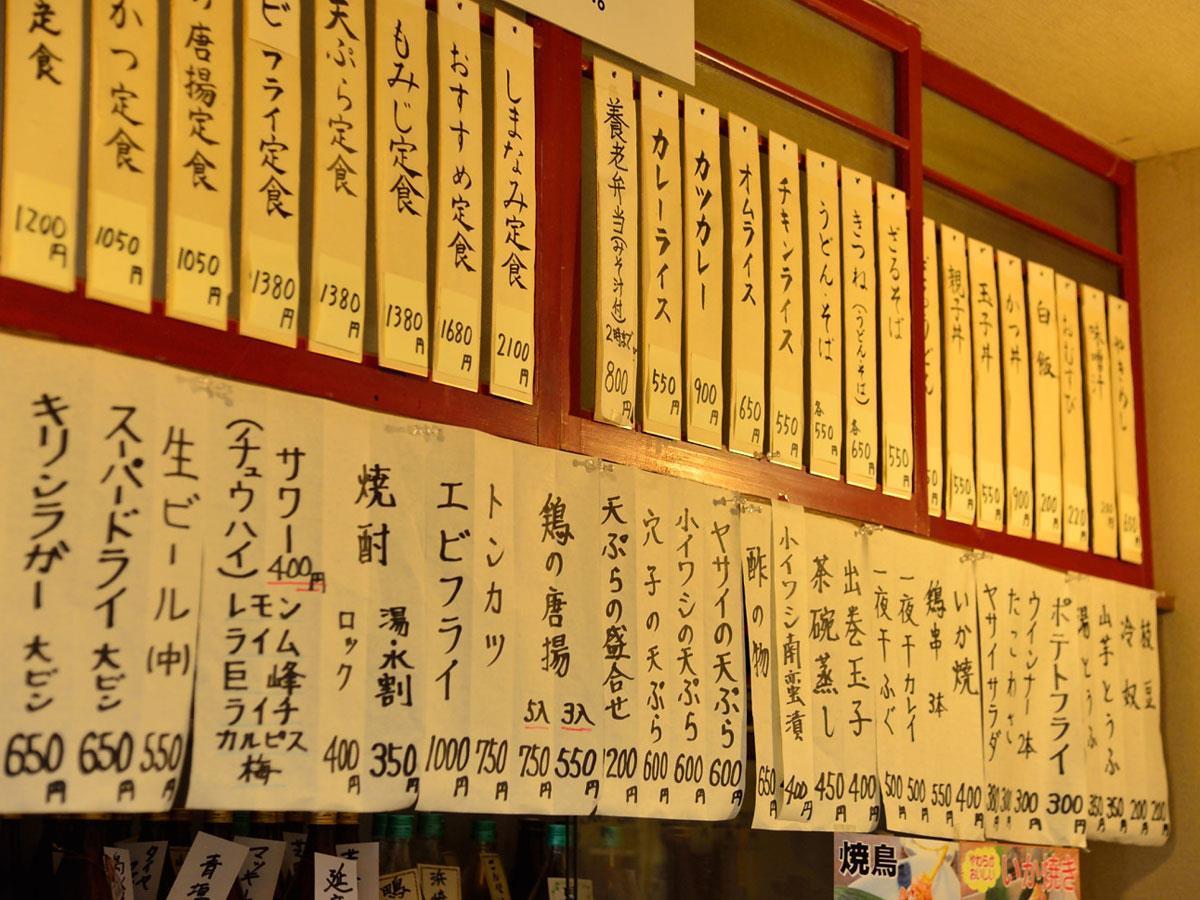 定食 1200円
かつ定食 1050円
唐揚定食 1050円
ビフライ定食 1380円
天ぷら定食 1380円
もみじ定食 1380円
おすすめ定食 1680円
しまなみ定食 2100円
養老弁当(みそ汁付) 2時まで 800円
カレーライス 550円
カツカレー 900円
オムライス 650円
チキンライス 550円
うどん・そば 各550円
きつね(うどん・そば) 各650円
ざるそば 550円
親子丼 550円
玉子丼 550円
かつ丼 900円
白飯 200円
おむすび 220円
味噌汁 200円
やきめし 650円
キリンラガー 大ビン 650円
スーパードライ 大ビン 650円
生ビール(中) 550円
サワー 400円
(チュウハイ)
レモン
ライム
巨峰
ライチ
カルピス
梅
焼酎
ロック 400円
湯・水割 350円
エビフライ 1000円
トンカツ 750円
鶏の唐揚
5入 750円
3入 550円
天ぷらの盛合せ 1200円
穴子の天ぷら 600円
小イワシの天ぷら 600円
ヤサイの天ぷら 600円
酢の物 650円
小イワシ南蛮漬 400円
茶碗蒸し 450円
出巻玉子 400円
一夜干ふぐ 500円
一夜干カレイ 500円
鶏串 3本 550円
いか焼 400円
ヤサイサラダ 380円
たこわさ
ウインナー 2本 300円
ポテトフライ 300円
湯とうふ 350円
山芋とうふ 350円
冷奴 200円
枝豆 200円
焼鳥
いか焼き